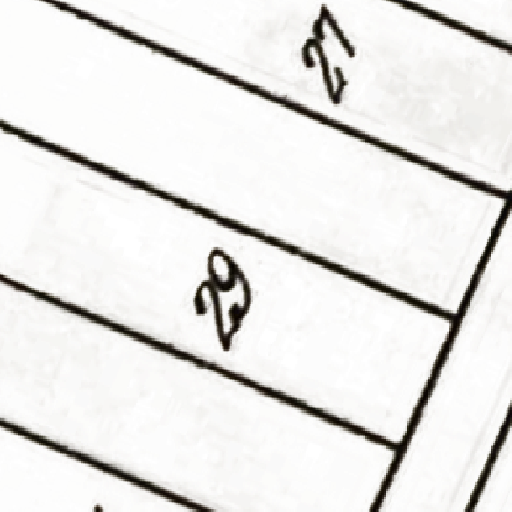 27
29